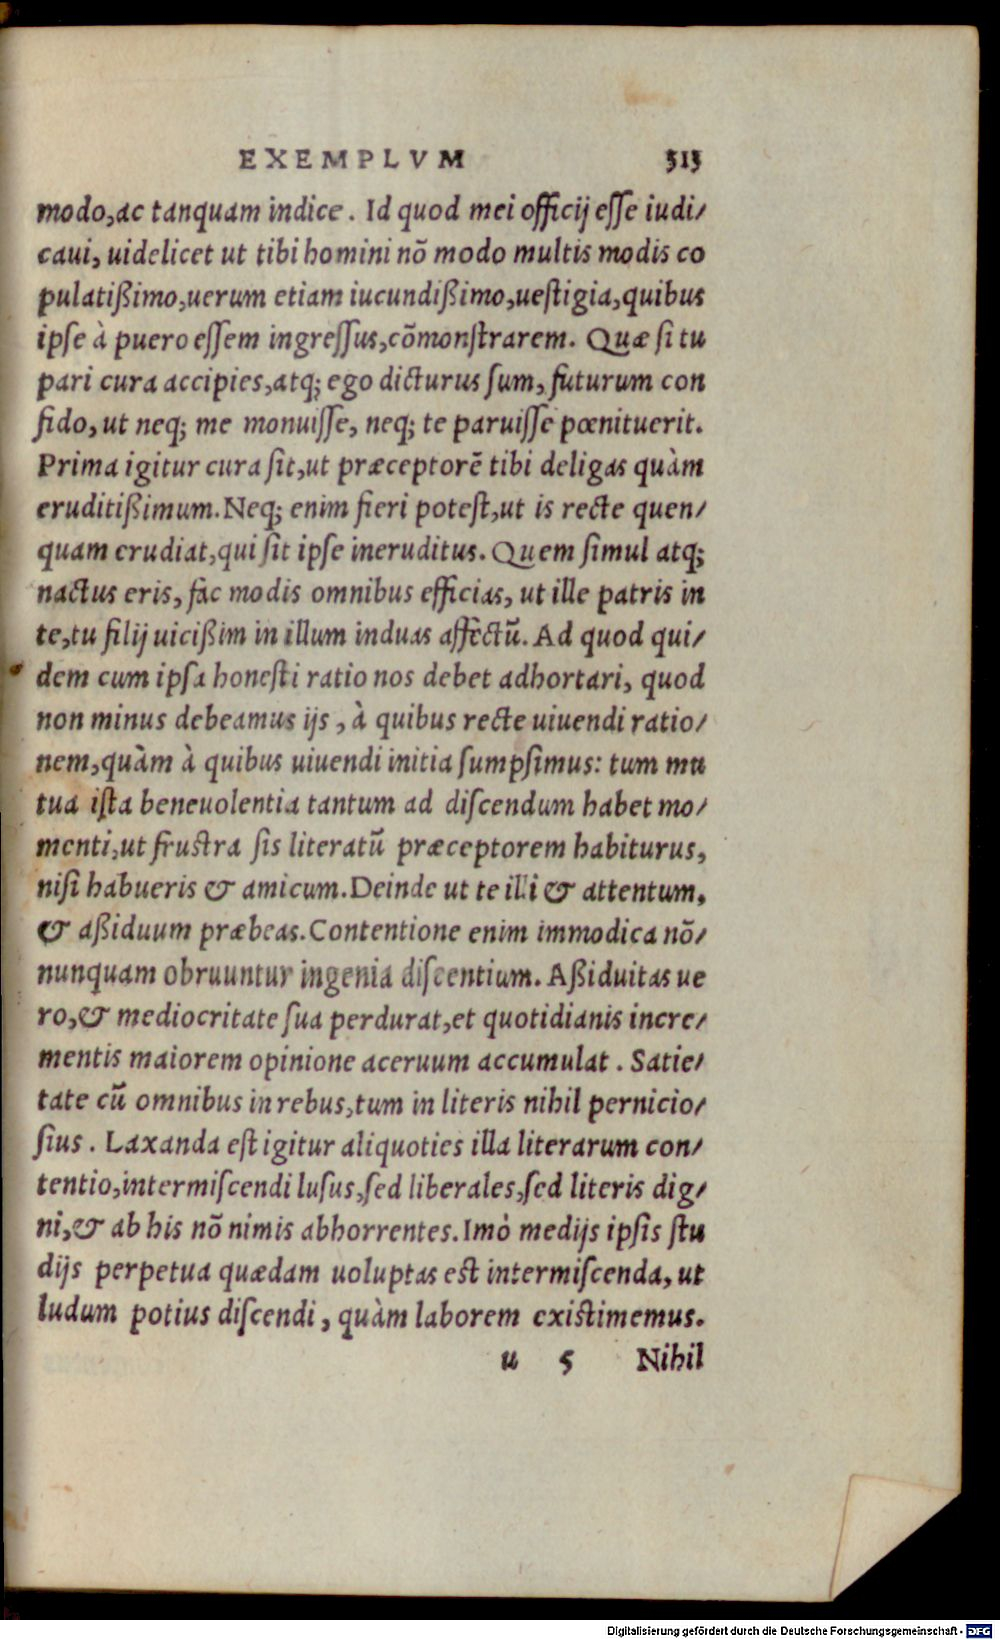 EXEMPLVM 313
modo,ac tanquam indice. Id quod mei officij eſſe iudi/
caui, uidelicet ut tibi homini nõ modo multis modis co
pulatißimo,uerum etiam iucundißimo,ueſtigia,quibus
ipſe à puero eſſem ingreſſus,cõmonſtrarem. Quæ ſi tu
pari cura accipies,atq; ego dicturus ſum, futurum con
fido, ut neq; me monuiſſe, neq; te paruiſſe pœnituerit.
Prima igitur cura ſit,ut præceptorẽ tibi deligas quàm
eruditißimum. Neq; enim fieri poteſt,ut is recte quen/
quam erudiat,qui ſit ipſe ineruditus. Quem ſimul atq;
nactus eris, fac modis omnibus efficias, ut ille patris in
te,tu filij uicißim in illum induas affectũ. Ad quod qui/
dem cum ipſa honeſti ratio nos debet adhortari, quod
non minus debeamus ijs, à quibus recte uiuendi ratio/
nem,quàm à quibus uiuendi initia ſumpſimus: tum mu
tua iſta beneuolentia tantum ad diſcendum habet mo/
menti,ut fruſtra ſis literatũ præceptorem habiturus,
niſi habueris & amicum. Deinde ut te illi & attentum,
& aßiduum præbeas. Contentione enim immodica nõ/
nunquam obruuntur ingenia diſcentium. Aßiduitas ue
ro,& mediocritate ſua perdurat,et quotidianis incre/
mentis maiorem opinione aceruum accumulat. Satie/
tate cũ omnibus in rebus,tum in literis nihil pernicio/
ſius. Laxanda eſt igitur aliquoties illa literarum con/
tentio,intermiſcendi luſus,ſed liberales,ſed literis dig/
ni,& ab his nõ nimis abhorrentes. Imò medijs ipſis ſtu
dijs perpetua quædam uoluptas eſt intermiſcenda, ut
ludum potius diſcendi, quàm laborem exiſtimemus.
u 5 Nihil
Digitalisierung gefördert durch die Deutsche Forschungsgemeinschaft - DFG